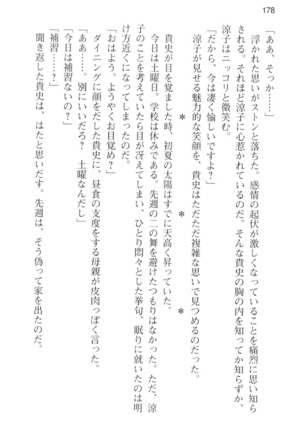 178
「ああ、そっか……」
浮かれた思いがストンと落ちた。感情の起伏が激しくなっていることを痛烈に思い知ら
される。それほど涼子に心惹かれているのだ。そんな貴史の胸の内を知ってか知らずか、
涼子はニッコリと微笑む。
「だから、今は凄く愉しいですよ?」
涼子が見せる魅力的な笑顔を、貴史はただただ複雑な思いで見つめるのだった。
* * *
貴史が目を覚ました時、初夏の太陽はすでに天高く昇っていた。
今日は土曜日。学校は休みである。先週の二の舞を避けたつもりはなかった。ただ、涼
子のことを考えていたら目が冴えてしまい、ひとり悶々とした挙句、眠りに就いたのは明
け方近くになってしまったのだ。
「おはよう。ようやくお目覚め?」
ダイニングに顔をだした貴史に、昼食の支度をする母親が皮肉っぽく言った。
「ああ……。別にいいだろ? 土曜なんだし」
「今日は補習ないの?」
「補習……?」
聞き返した貴史は、はたと思いだす。先週は、そう偽って家を出たのだ。